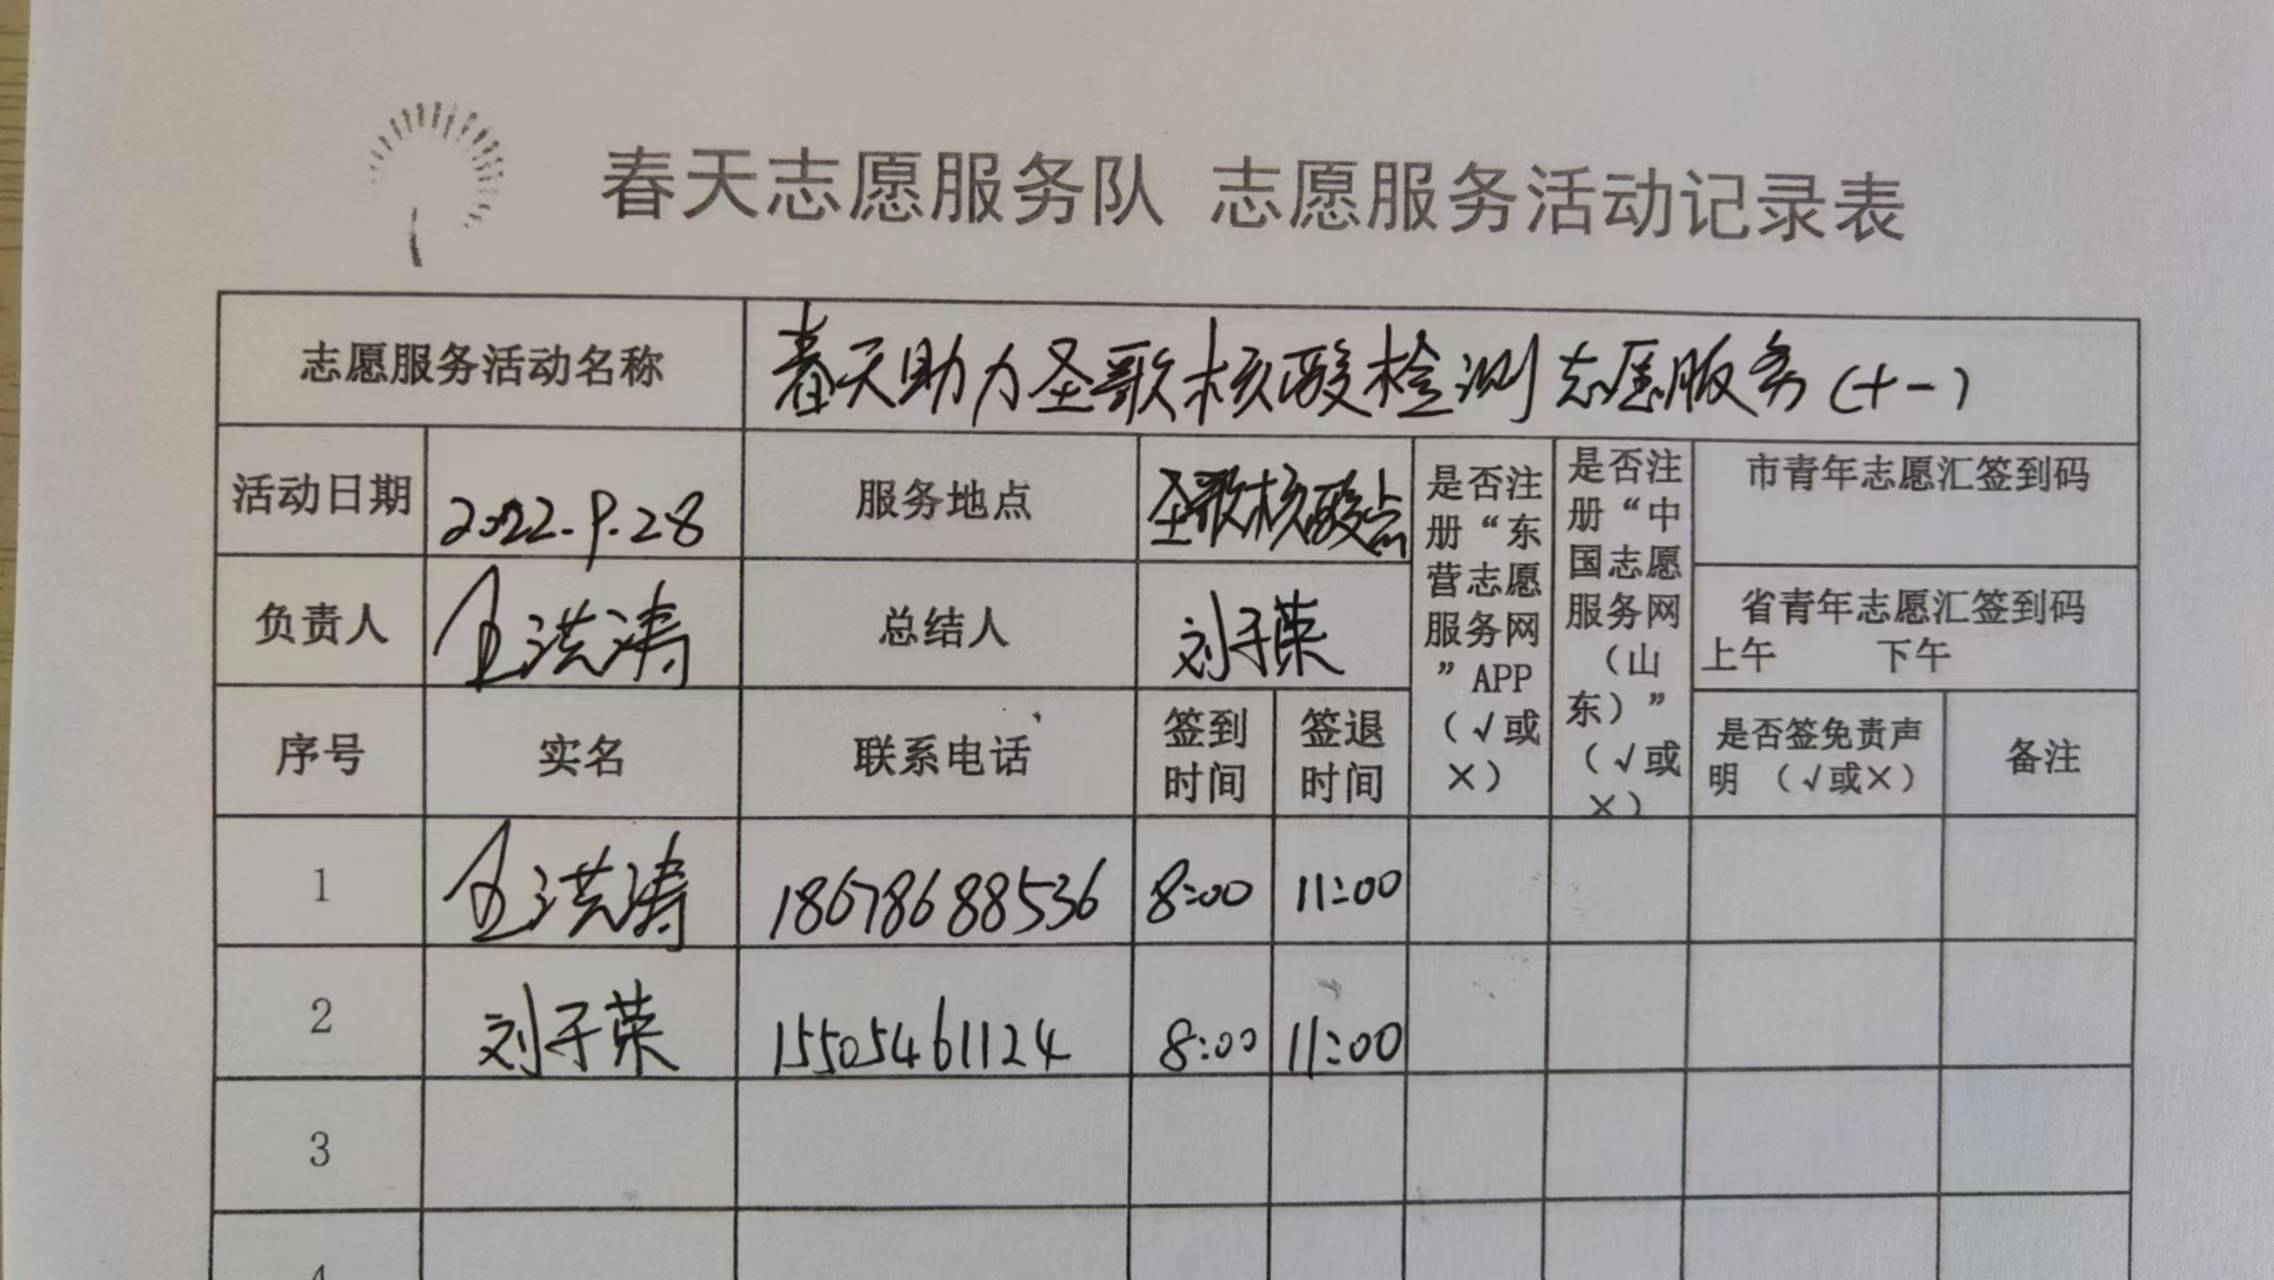 春天志愿服务队 志愿服务活动记录表
志愿服务活动名称 春天助力圣歌核酸检测志愿服务(十一)
活动日期 2022.9.28 服务地点 圣歌核酸点
是否注册“东营志愿服务网”APP(√或×)
是否注册“中国志愿服务网(山东)”(√或×)
市青年志愿汇签到码
负责人 洪涛 总结人 刘子荣
省青年志愿汇签到码
上午 下午
序号 实名 联系电话 签到时间 签退时间 是否签免责声明 (√或×) 备注
1 洪涛 18678688536 8:00 11:00
2 刘子荣 15505461124 8:00 11:00
3
4